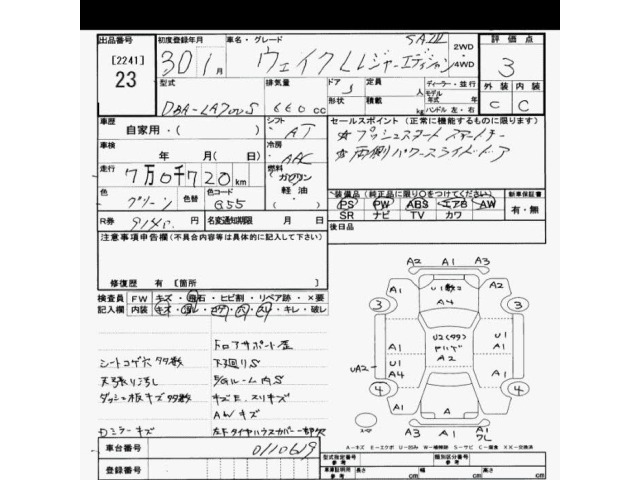 出品番号 初度登録年月 車名・グレード SAⅢ 2WD ・4WD 評価点
[2241] 23 30 1月 ウェイク Lレジャーエディション 3
型式 排気量 ドア 5 定員 名 ディーラー・並行 外装 内装
DBA-LA700S 660 cc 形状 積載 kg モデル 年式 年 ハンドル 左・右 C C
車歴 シフト セールスポイント (正常に機能するものに限ります)
自家用・( ) AT ☆プッシュスタート スマートキー
車検 年 月(日) 冷房 AAC ☆両側パワースライドドア
走行 7万0千720km 燃料 ガソリン 軽油
色 グリーン 色コード G55 装備品(純正品に限り○をつけてください) 新車保証書
PS PW ABS エアB AW 有・無
R券 名変通知期限 月 日 SR ナビ TV カワ
注意事項申告欄(不具合内容等は具体的に記入して下さい) 後日品
修復歴 有 [箇所 ]
検査員 FW キズ・飛石・ヒビ割・リペア跡・×要
記入欄 内装 キズ・汚レ・コゲ・穴・スリ・キレ・破レ
ドロアサポート歪
シートコゲ穴多数 下廻りS
天張り汚し
ダッシュ板キズ多数 キズE、スリキズ
AWキズ
Dミラーキズ 左Fタイヤハウスカバー一部欠
車台番号 0110619
登録番号
A2 A1 A3
A1 U1(数) A2 A1
3 A4 3
A1 U2(多々) U1
U1 ヤハゲ A1
UA2 A4 A2
4 4
A1 A A1
A3 A1 A1
ワレ
A-キズ E-エクボ U-凹み W-補修跡 S-サビ C-腐食 XX-交換済
型式指定番号 参考 類別区分番号 参考
車車証明用 参考 長さ cm 幅 cm 高さ cm